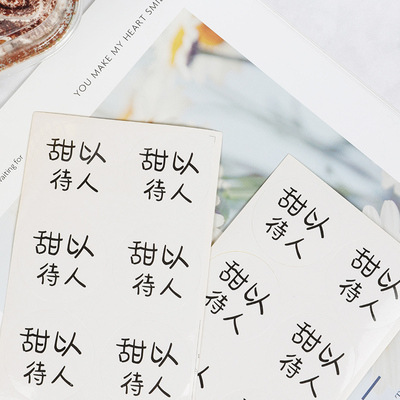 YOU MAKE MY HEART SMILE
aiting for
甜以
待人
甜以
待人
甜以
待人
甜以
待人
甜以
待人
甜以
待人
甜以
待人
甜以
待人
甜以
待人
甜以
待人